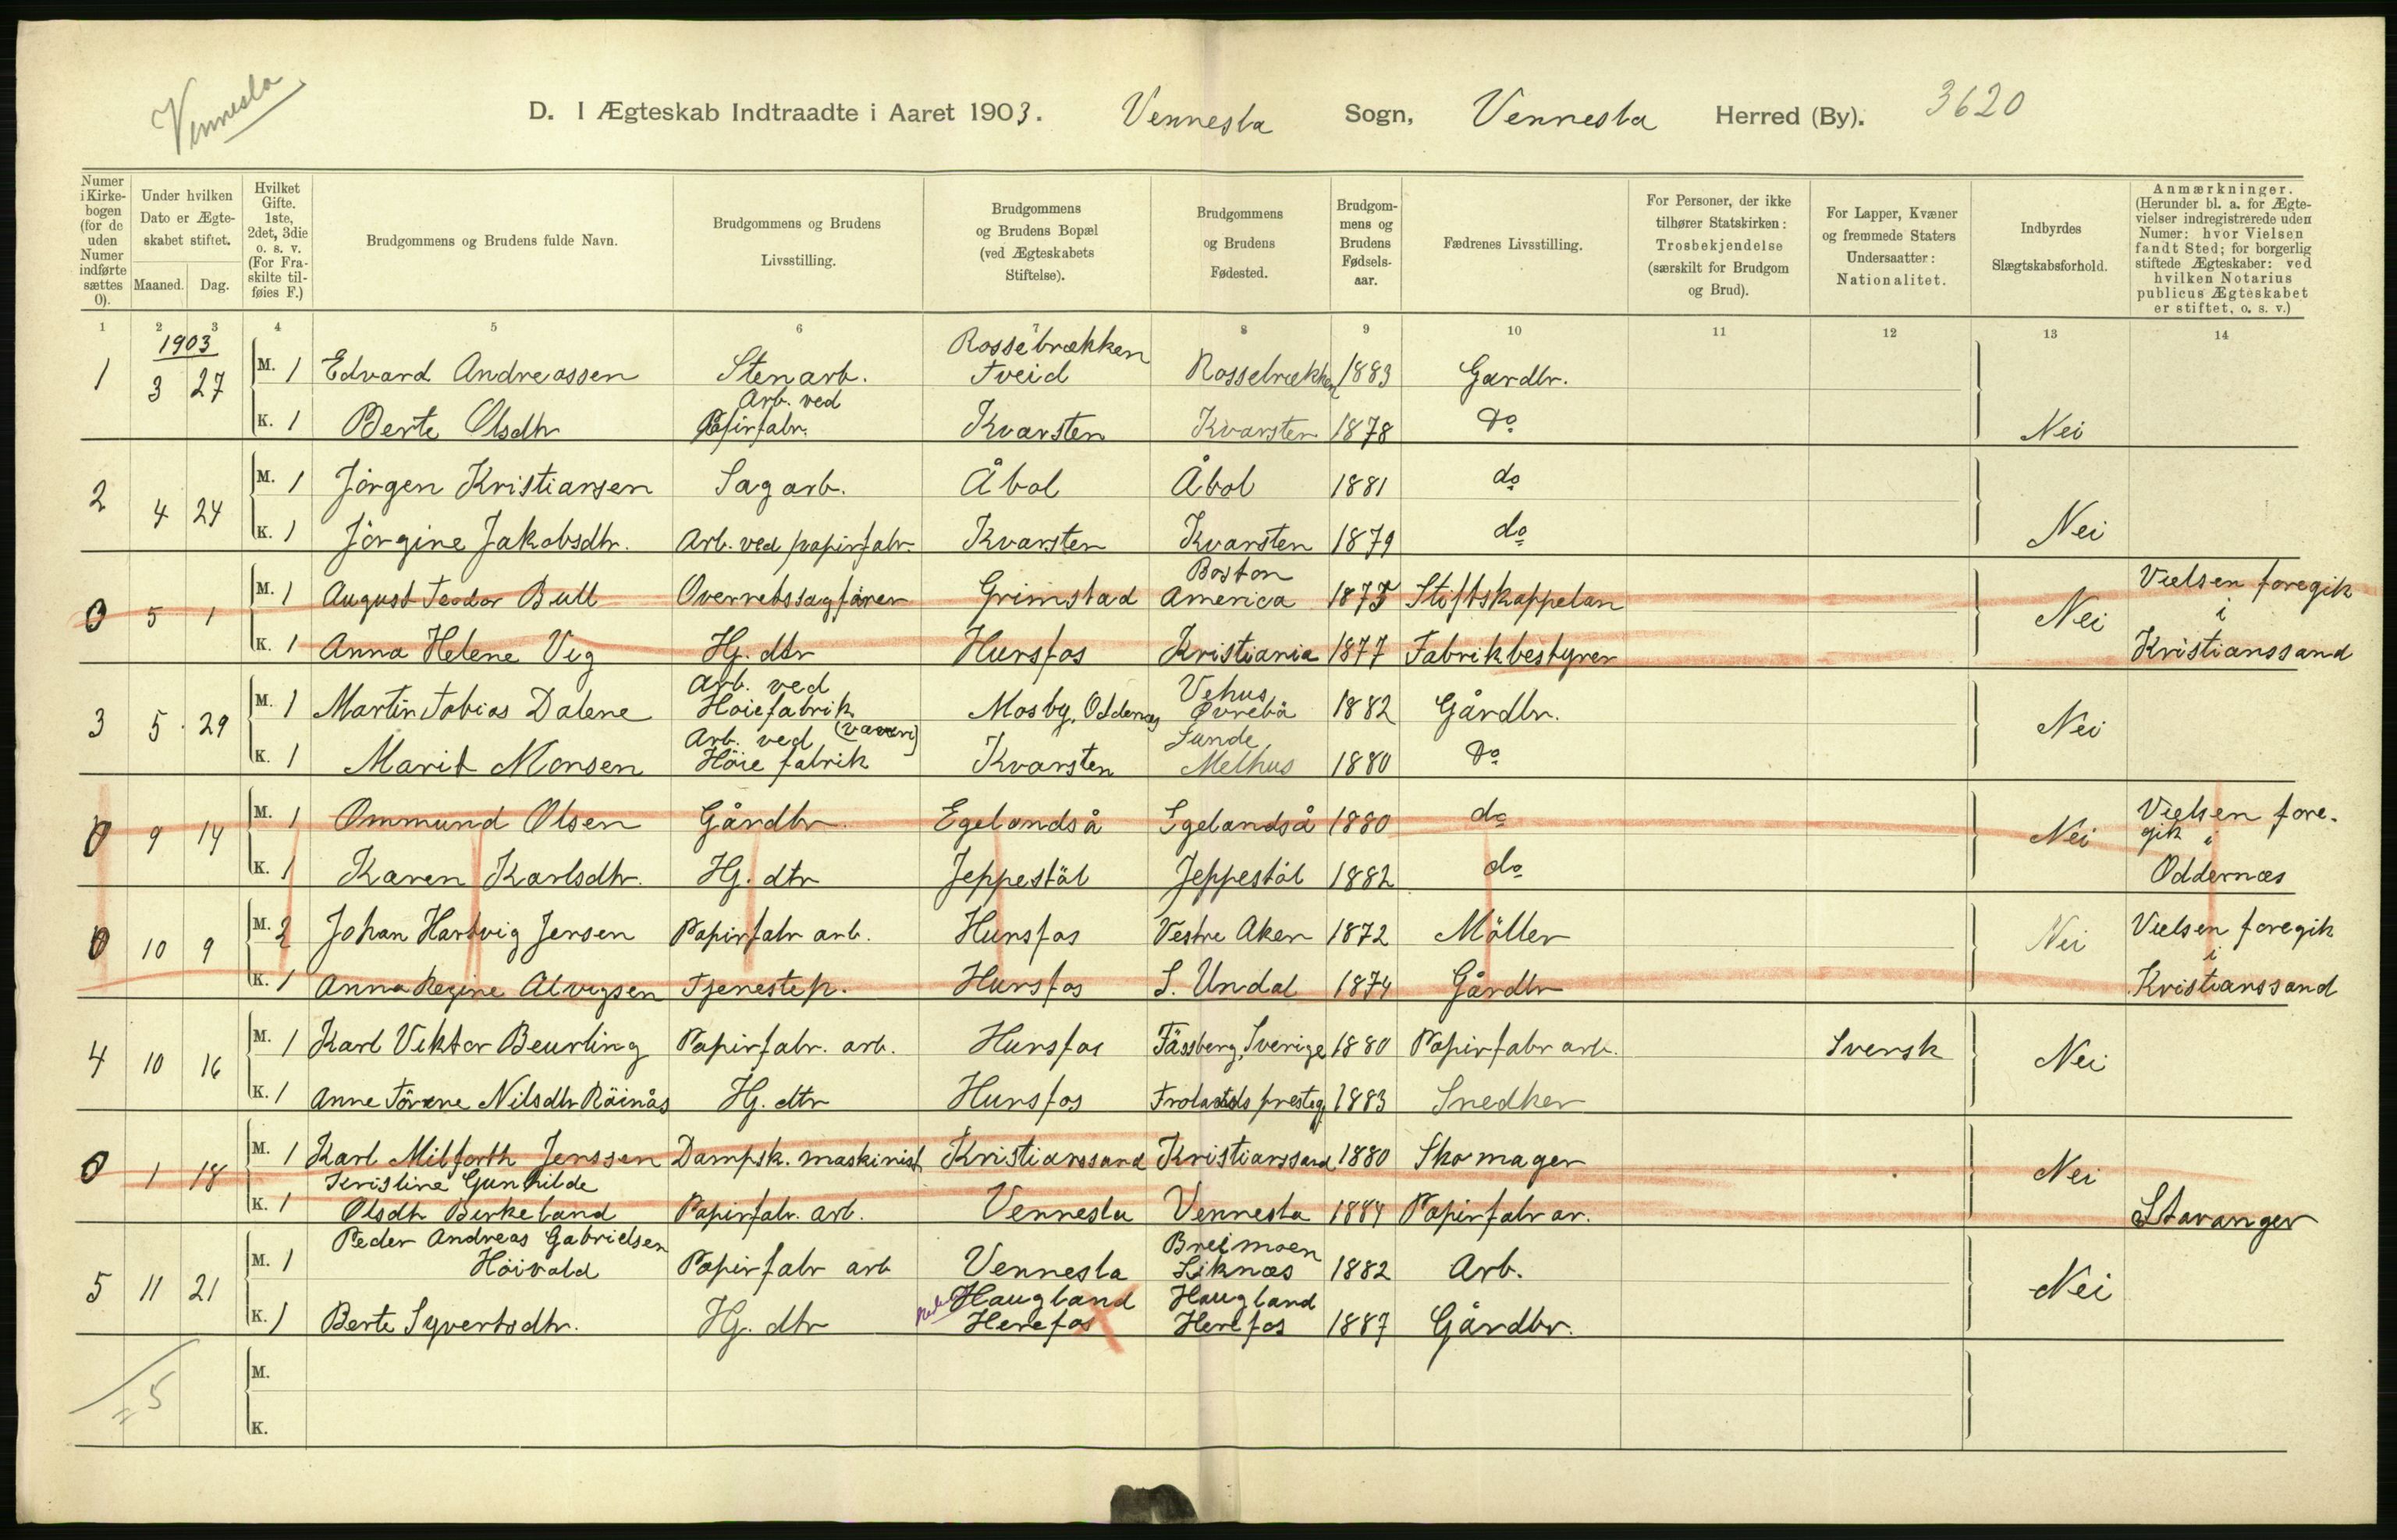 Vennesla
D. I Ægteskab Indtraadte i Aaret 1903. Vennesla Sogn, Vennesla Herred (By). 3620
Numer i Kirke- bogen (for de uden Numer indførte sættes 0).
Under hvilken Dato er Ægte- skabet stiftet.
Maaned. Dag.
Hvilket Gifte. 1ste, 2det, 3die o. s. v. (For Fra- skilte til- føies F.)
Brudgommens og Brudens fulde Navn.
Brudgommens og Brudens Livsstilling.
Brudgommens og Brudens Bopæl (ved Ægteskabets Stiftelse).
Brudgommens og Brudens Fødested.
Brudgom- mens og Brudens Fødsels- aar.
Fædrenes Livsstilling.
For Personer, der ikke tilhører Statskirken: Trosbekjendelse (særskilt for Brudgom og Brud).
For Lapper, Kvæner og fremmede Staters Undersaatter: Nationalitet.
Indbyrdes Slægtskabsforhold.
Anmærkninger. (Herunder bl. a. for Ægte- vielser indregistrerede uden Numer: hvor Vielsen fandt Sted; for borgerlig stiftede Ægteskaber: ved hvilken Notarius publicus Ægteskabet er stiftet, o. s. v.)
1 2 3 4 5 6 7 8 9 10 11 12 13 14
1903
1 3 27 M. 1 Edvard Andreassen Stenarb. Rossebrækken Tveid Rossebrækken 1883 Gardbr.
K. 1 Berte Olsdtr Arb. ved Papirfabr. Kvarsten Kvarsten 1878 do Nei
2 4 24 M. 1 Jörgen Kristiansen Sagarb. Åbol Åbol 1881 do
K. 1 Jörgine Jakobsdtr. Arb. ved papirfabr. Kvarsten Kvarsten 1879 do Nei
0 5 1 M. 1 August Teodor Bull Overretssagförer Grimstad Boston America 1875 Stiftskappelan Nei Vielsen foregik i
K. 1 Anna Helene Vig Hj. dtr Hunsfos Kristiania 1877 Fabrikbestyrer Kristianssand
3 5 29 M. 1 Martin Tobias Dalene Arb. ved Höiefabrik (væveri) Mosby, Oddernæs Vehus Øvrebö 1882 Gårdbr. Nei
K. 1 Marit Monsen Arb. ved Höie fabrik Kvarsten Sunde Melhus 1880 do
0 9 14 M. 1 Ommund Olsen Gårdbr. Egelandså Egelandså 1880 do Nei Vielsen fore- gik i
K. 1 Karen Karlsdtr. Hj. dtr Jeppestöl Jeppestöl 1882 do Oddernæs
0 10 9 M. 2 Johan Hartvig Jensen Papirfabr arb. Hunsfos Vestre Aker 1872 Möller Nei Vielsen foregik i
K. 1 Anna Regine Alvigsen Tjenestep. Hunsfos S. Undal 1874 Gårdbr Kristianssand
4 10 16 M. 1 Karl Viktor Beurling Papirfabr. arb. Hunsfos Fässberg, Sverige 1880 Papirfabr arb. Svensk Nei
K. 1 Anne Nilsdtr Röinås Hj. dtr Hunsfos Frolands presteg. 1883 Snedker
0 1 18 M. 1 Karl Milforth Jenssen Dampsk. maskinist Kristianssand Kristianssand 1880 Skomager Nei
K. 1 Kristine Gunhilde Olsdtr Birkeland Papirfabr. arb. Vennesla Vennesla 1884 Papirfabr ar. Stavanger
5 11 21 M. 1 Peder Andreas Gabrielsen Höivold Papirfabr arb Vennesla Breimoen Liknæs 1882 Arb. Nei
K. 1 Berte Syvertsdtr. Hj. dtr Haugland Herefos Haugland Herefos 1887 Gårdbr.
M.
= 5
K.